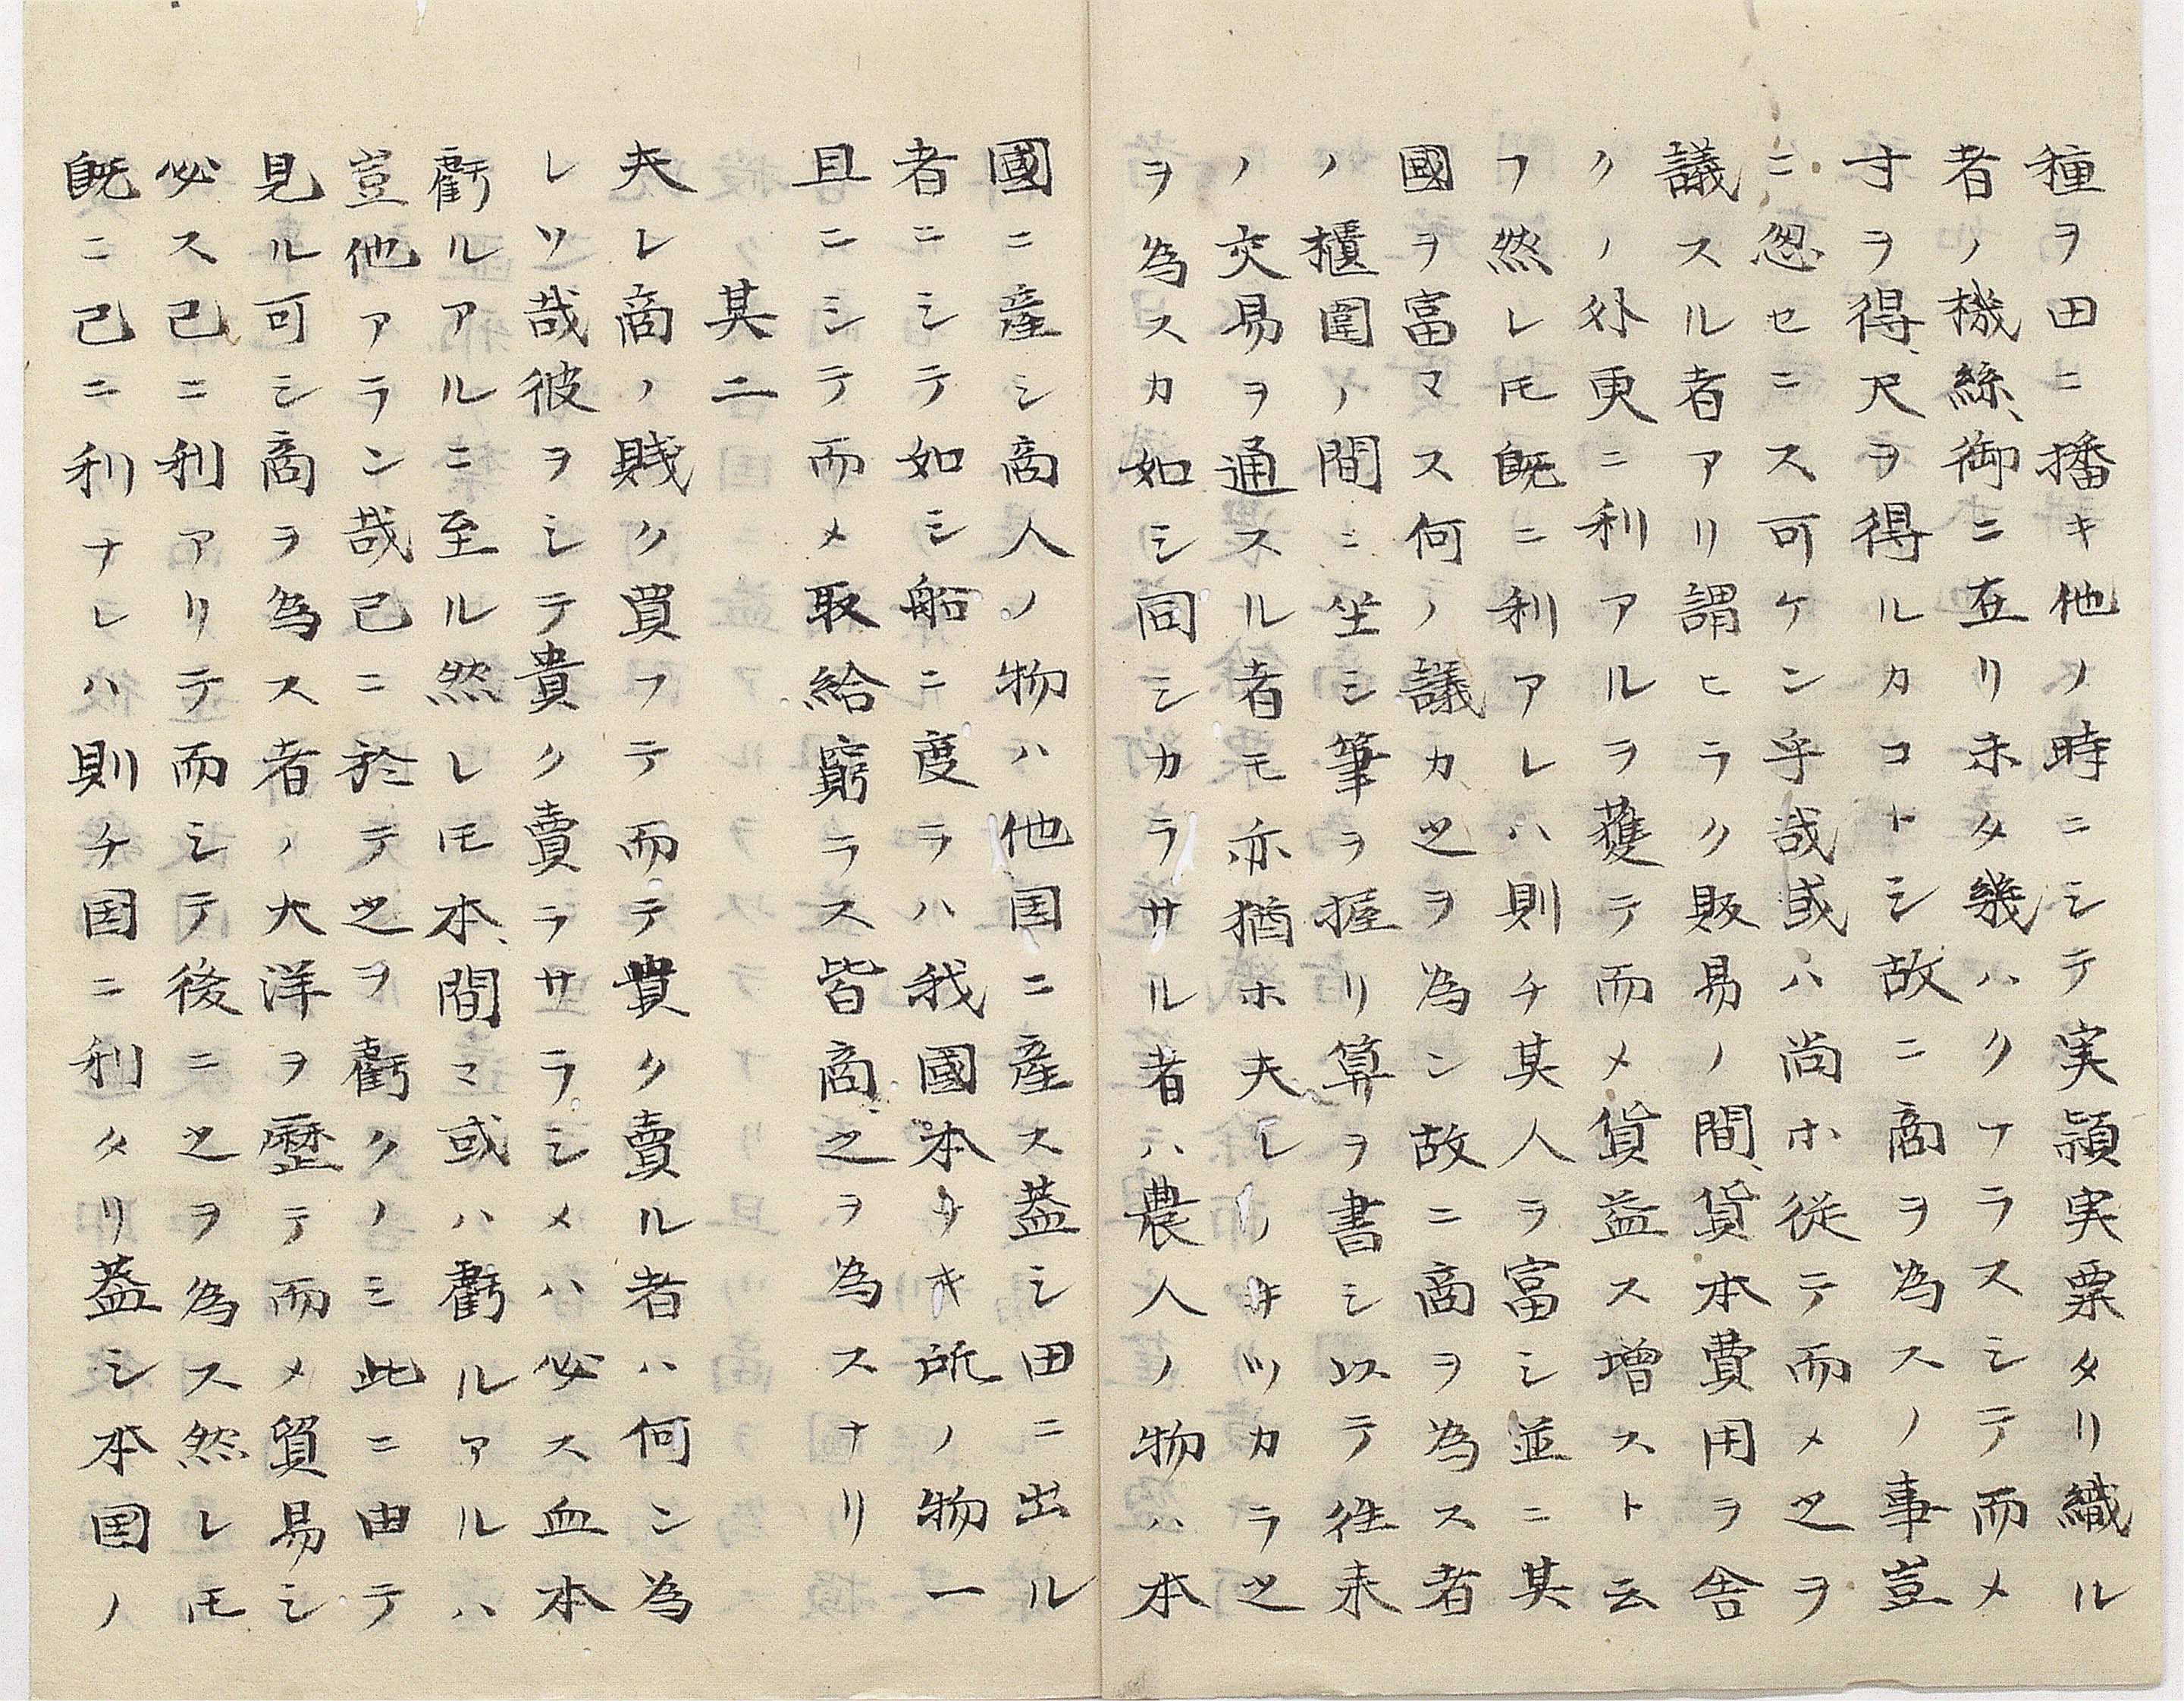 種ヲ田ニ播キ他ノ時ニシテ実頴実栗タリ織ル
者ノ機絲、御ニ在リ未タ幾ハクナラスシテ而メ
寸ヲ得、尺ヲ得ルカコトシ故ニ商ヲ為スノ事豈
ニ忽セニス可ケン乎哉或ハ尚ホ従テ而メ之ヲ
議スル者アリ謂ヒラク販易ノ間、貨本費用ヲ舎
クノ外更ニ利アルヲ獲テ而メ貨益ス増スト云
フ然レ𪜈既ニ利アレハ則チ其人ヲ富シ並ニ其
國ヲ富マス何ノ議カ之ヲ為ン故ニ商ヲ為ス者
ノ櫃圍ノ間ニ坐シ筆ヲ握リ算ヲ書シ以テ往来
ノ交易ヲ通スル者モ亦猶ホ夫レノキツカラ之
ヲ為スカ如シ同シカラサル者ハ農人ノ物ハ本
國ニ産シ商人ノ物ハ他国ニ産ス蓋シ田ニ出ル
者ニシテ如シ船ニ度ラハ我國本リキ所ノ物一
且ニシテ而メ取給窮ラス皆商之ヲ為スナリ
其二
夫レ商ノ賎ク買フテ而テ貴ク賣ル者ハ何ン為
レソ哉彼ヲシテ貴ク賣ラサラシメハ必ス血本
虧ルアルニ至ル然レ𪜈本、間マ或ハ虧ルアルハ
豈他アラン哉己ニ於テ之ヲ虧クノミ此ニ由テ
見ル可シ商ヲ為ス者ノ大洋ヲ歴テ而メ貿易シ
必ス己ニ利アリテ而シテ後ニ之ヲ為ス然レ𪜈
既ニ己ニ利ナレハ則チ国ニ利タリ蓋シ本国ノ